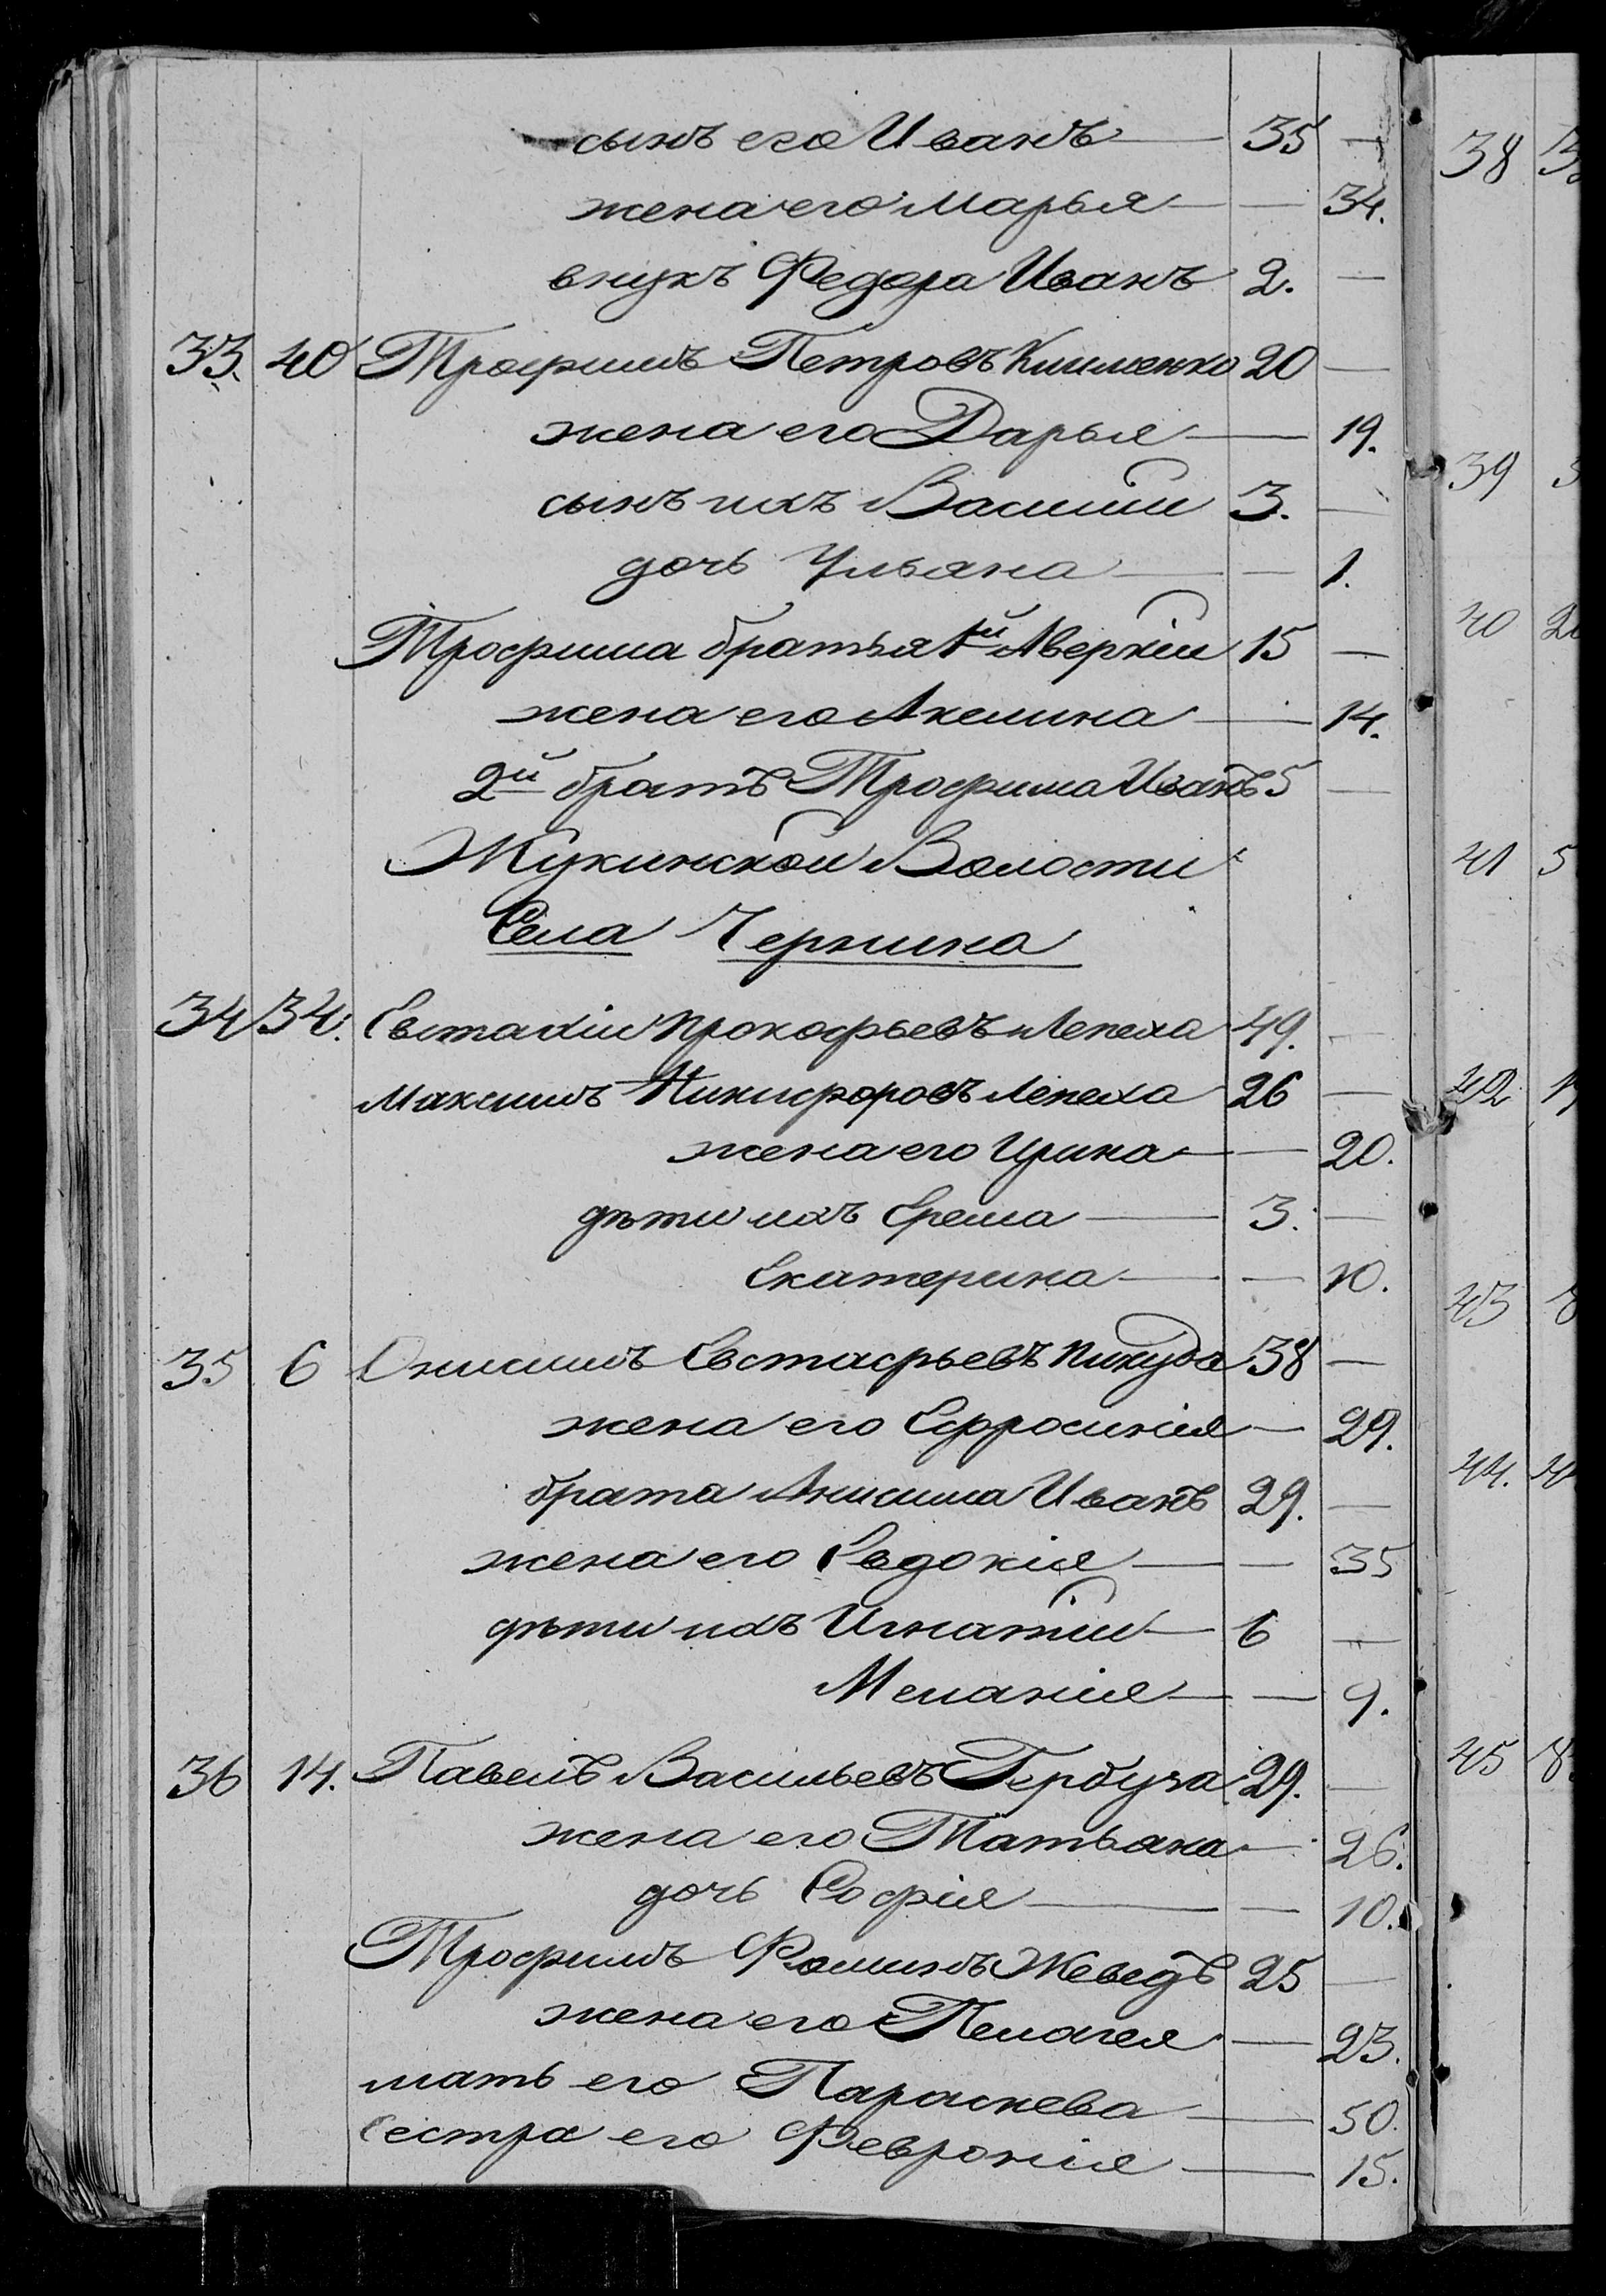 сынъ его Иванъ — 35 —
38
жена его Марья — — 34.
внукъ Федора Иванъ 2. —
33. 40 Трофимъ Петровъ Клименко 20 —
жена его Дарья — 19.
39
сынъ ихъ Василій 3. —
дочь Ульяна — — 1.
Трофима братья 1й Аверкій 15 —
40
жена его Акелина — 14.
2й братъ Трофима Иванъ 5 —
Жукинской Волости
41 5
Села Чернина
34 34. Евстахій Прокофьевъ Лепеха 49. —
Максимъ Никифоровъ Лепеха 26 —
42
жена его Ирина — — 20.
дѣти ихъ Ерема — 3. —
Екатерина — — 10.
43
35 6 Онисимъ Евстафьевъ 38 —
жена его Ефросинія — 29.
44.
брата Анисима Иванъ 29. —
жена его Евдокія — — 35
дѣти ихъ Игнатій — 6 —
Меланія — — 9.
45
36 14. Павелъ Васильевъ Гербуза 29. —
жена его Татьяна — 26.
дочь Софія — — 10.
Трофимъ Фоминъ Жеведъ 25 —
жена его Пелагея — 23.
мать его Параскева — 50.
Сестра его Февронія — 15.